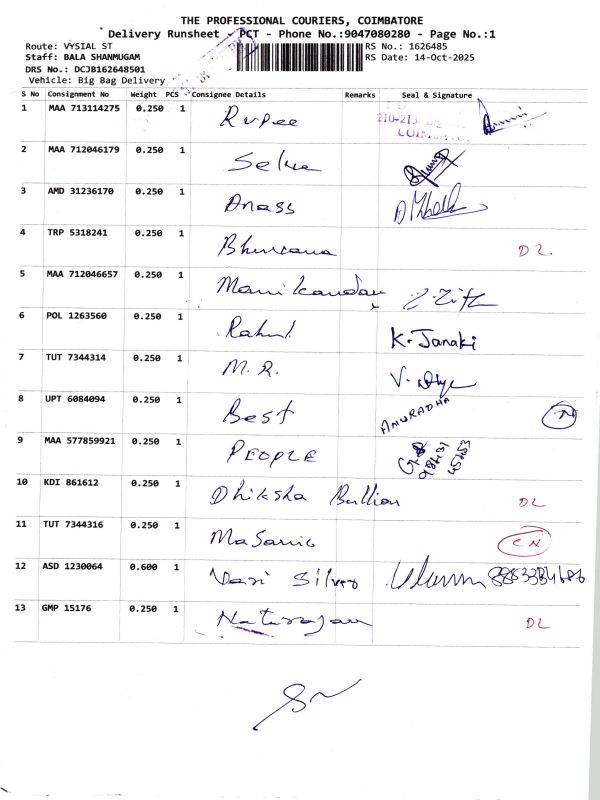 THE PROFESSIONAL COURIERS, COIMBATORE
Delivery Runsheet - PCT - Phone No.:9047080280 - Page No.:1
Route: VYSIAL ST RS No.: 1626485
Staff: BALA SHANMUGAM RS Date: 14-Oct-2025
DRS No.: DCJB162648501
Vehicle: Big Bag Delivery
S No Consignment No Weight PCS Consignee Details Remarks Seal & Signature
1 MAA 713114275 0.250 1 Rupee 210-213
2 MAA 712046179 0.250 1 Selva
3 AMD 31236170 0.250 1 Anass
4 TRP 5318241 0.250 1 Bhuvana DL
5 MAA 712046657 0.250 1 Mani kandan
6 POL 1263560 0.250 1 Rahul K. Janaki
7 TUT 7344314 0.250 1 M. R.
8 UPT 6084094 0.250 1 Best ANURADHA
9 MAA 577859921 0.250 1 PEOPLE
10 KDI 861612 0.250 1 Dhiksha Bullion DL
11 TUT 7344316 0.250 1 CN
12 ASD 1230064 0.600 1 Silver
13 GMP 15176 0.250 1 Natarajan DL